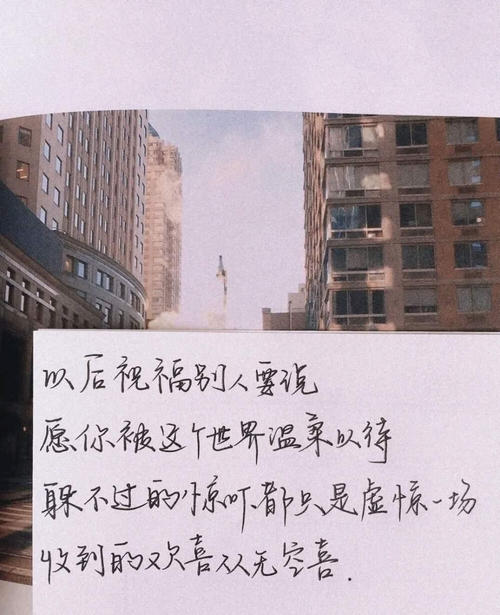 以后祝福别人要说
愿你被这个世界温柔以待
躲不过的惊吓都只是虚惊一场
收到的欢喜从无空喜.